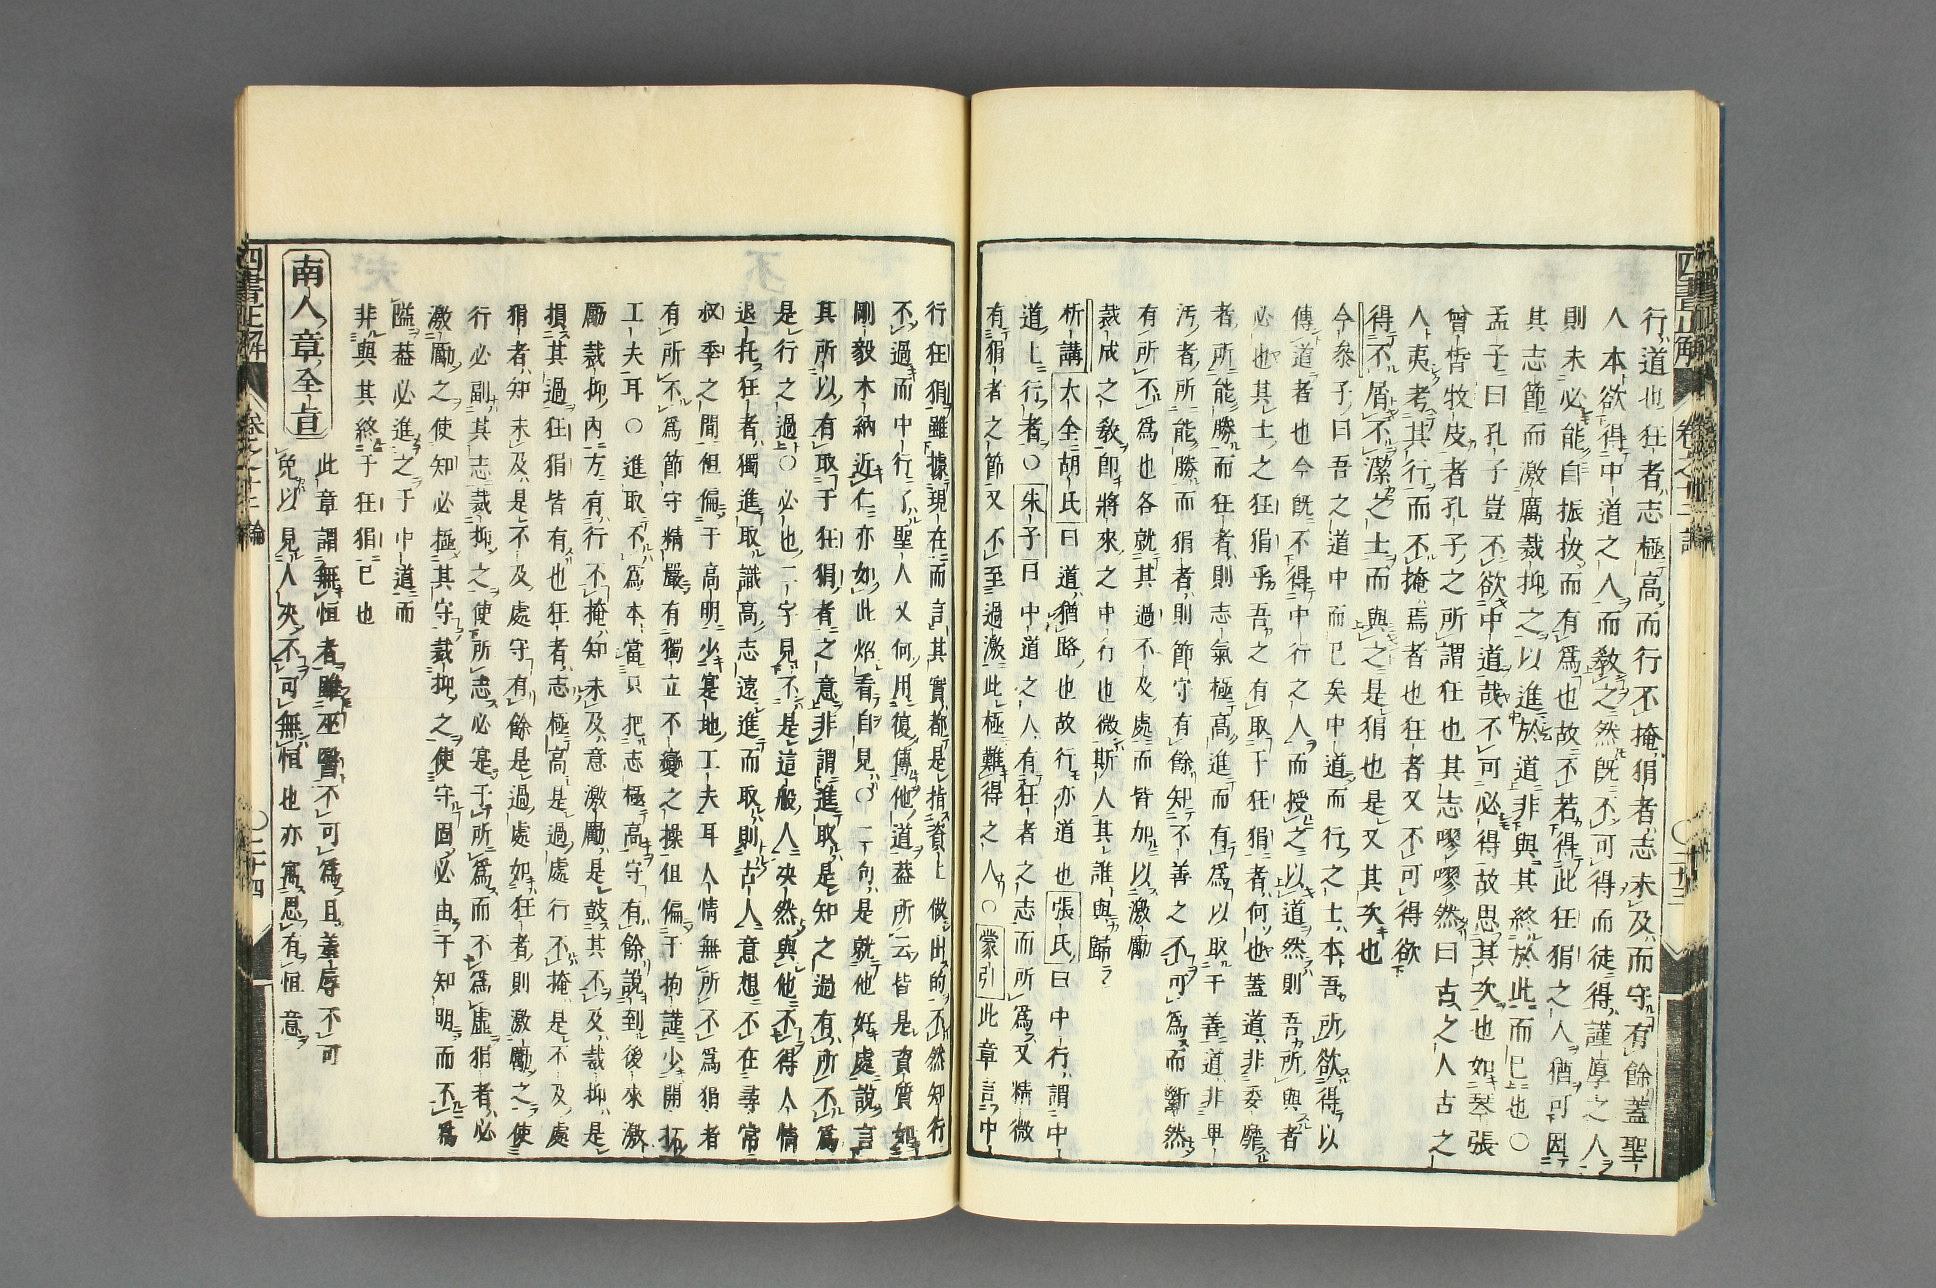 行道也狂者志極高而行不掩狷者志未及而守有餘蓋聖
人本欲得中道之人而教之然既不可得而徒得謹厚之人
則未必能自振抜而有爲也故不若得此狂狷之人猶可因
其志節而激厲裁抑之以進於道非與其終於此而已也〇
孟子曰孔子豈不欲中道哉不可必得故思其次也如琴張
曾皙牧皮者孔子之所謂狂也其志嘐嘐然曰古之人古之
人夷考其行而不掩焉者也狂者又不可得欲
得不屑不潔之士而與之是狷也是又其次也
今參子曰吾之道中而已矣中道而行之士本吾所欲得以
傳道者也今既不得中行之人而授之以道然則吾所與者
必也其士之狂狷乎吾之有取于狂狷者何也蓋道非委靡
者所能勝而狂者則志氣極高進而有爲以取于善道非卑
汚者所能勝而狷者則節守有餘知不善之不可爲而斷然
有所不爲也各就其過不及處而皆加以激勵
裁成之教卽將來之中行也微斯人其誰與歸
析講大全胡氏曰道猶路也故行亦道也張氏曰中行謂中
道上行者〇朱子曰中道之人有狂者之志而所爲又精微
有狷者之節又不至過激此極難得之人〇蒙引此章言中
行狂狷雖據現在而言其實都是指資上做出的不然知行
不過而中行了聖人又何用復傳他道葢所云皆是資質如
剛毅木納近仁亦如此炤看自見〇一句是就他好處說言
其所以有取于狂狷者之意非謂進取是知之過有所不爲
是行之過〇必也一字見不是這般人決然與他不得人情
退托狂者獨進取識高志遠進而取則古人意想不在尋常
叔季之間但偏于高明少寔地工夫耳人情無所不爲狷者
有所不爲節守精嚴有獨立不變之操但偏于拘謹少開拓
工夫耳〇進取不爲本當只把志極高守有餘說到後來激
勵裁抑內方有行不掩知未及意激勵是鼓其不及裁抑是
損其過狂狷皆有也狂者志極高是過處行不掩是不及處
狷者知未及是不及處守有餘是過處如狂者則激勵之使
行必副其志裁抑之使所志必寔于所爲而不爲虛狷者必
激勵之使知必極其守裁抑之使守固必由于知明而不爲
隘葢必進之于中道而
非與其終于狂狷已也
南人章全旨
此章謂無恒者雖巫醫不可爲且羞辱不可
免以見人決不可無恒也亦寓思有恒意
四書正解
卷之十二論
〇二十四
四書正解
卷之十二論
〇二十三